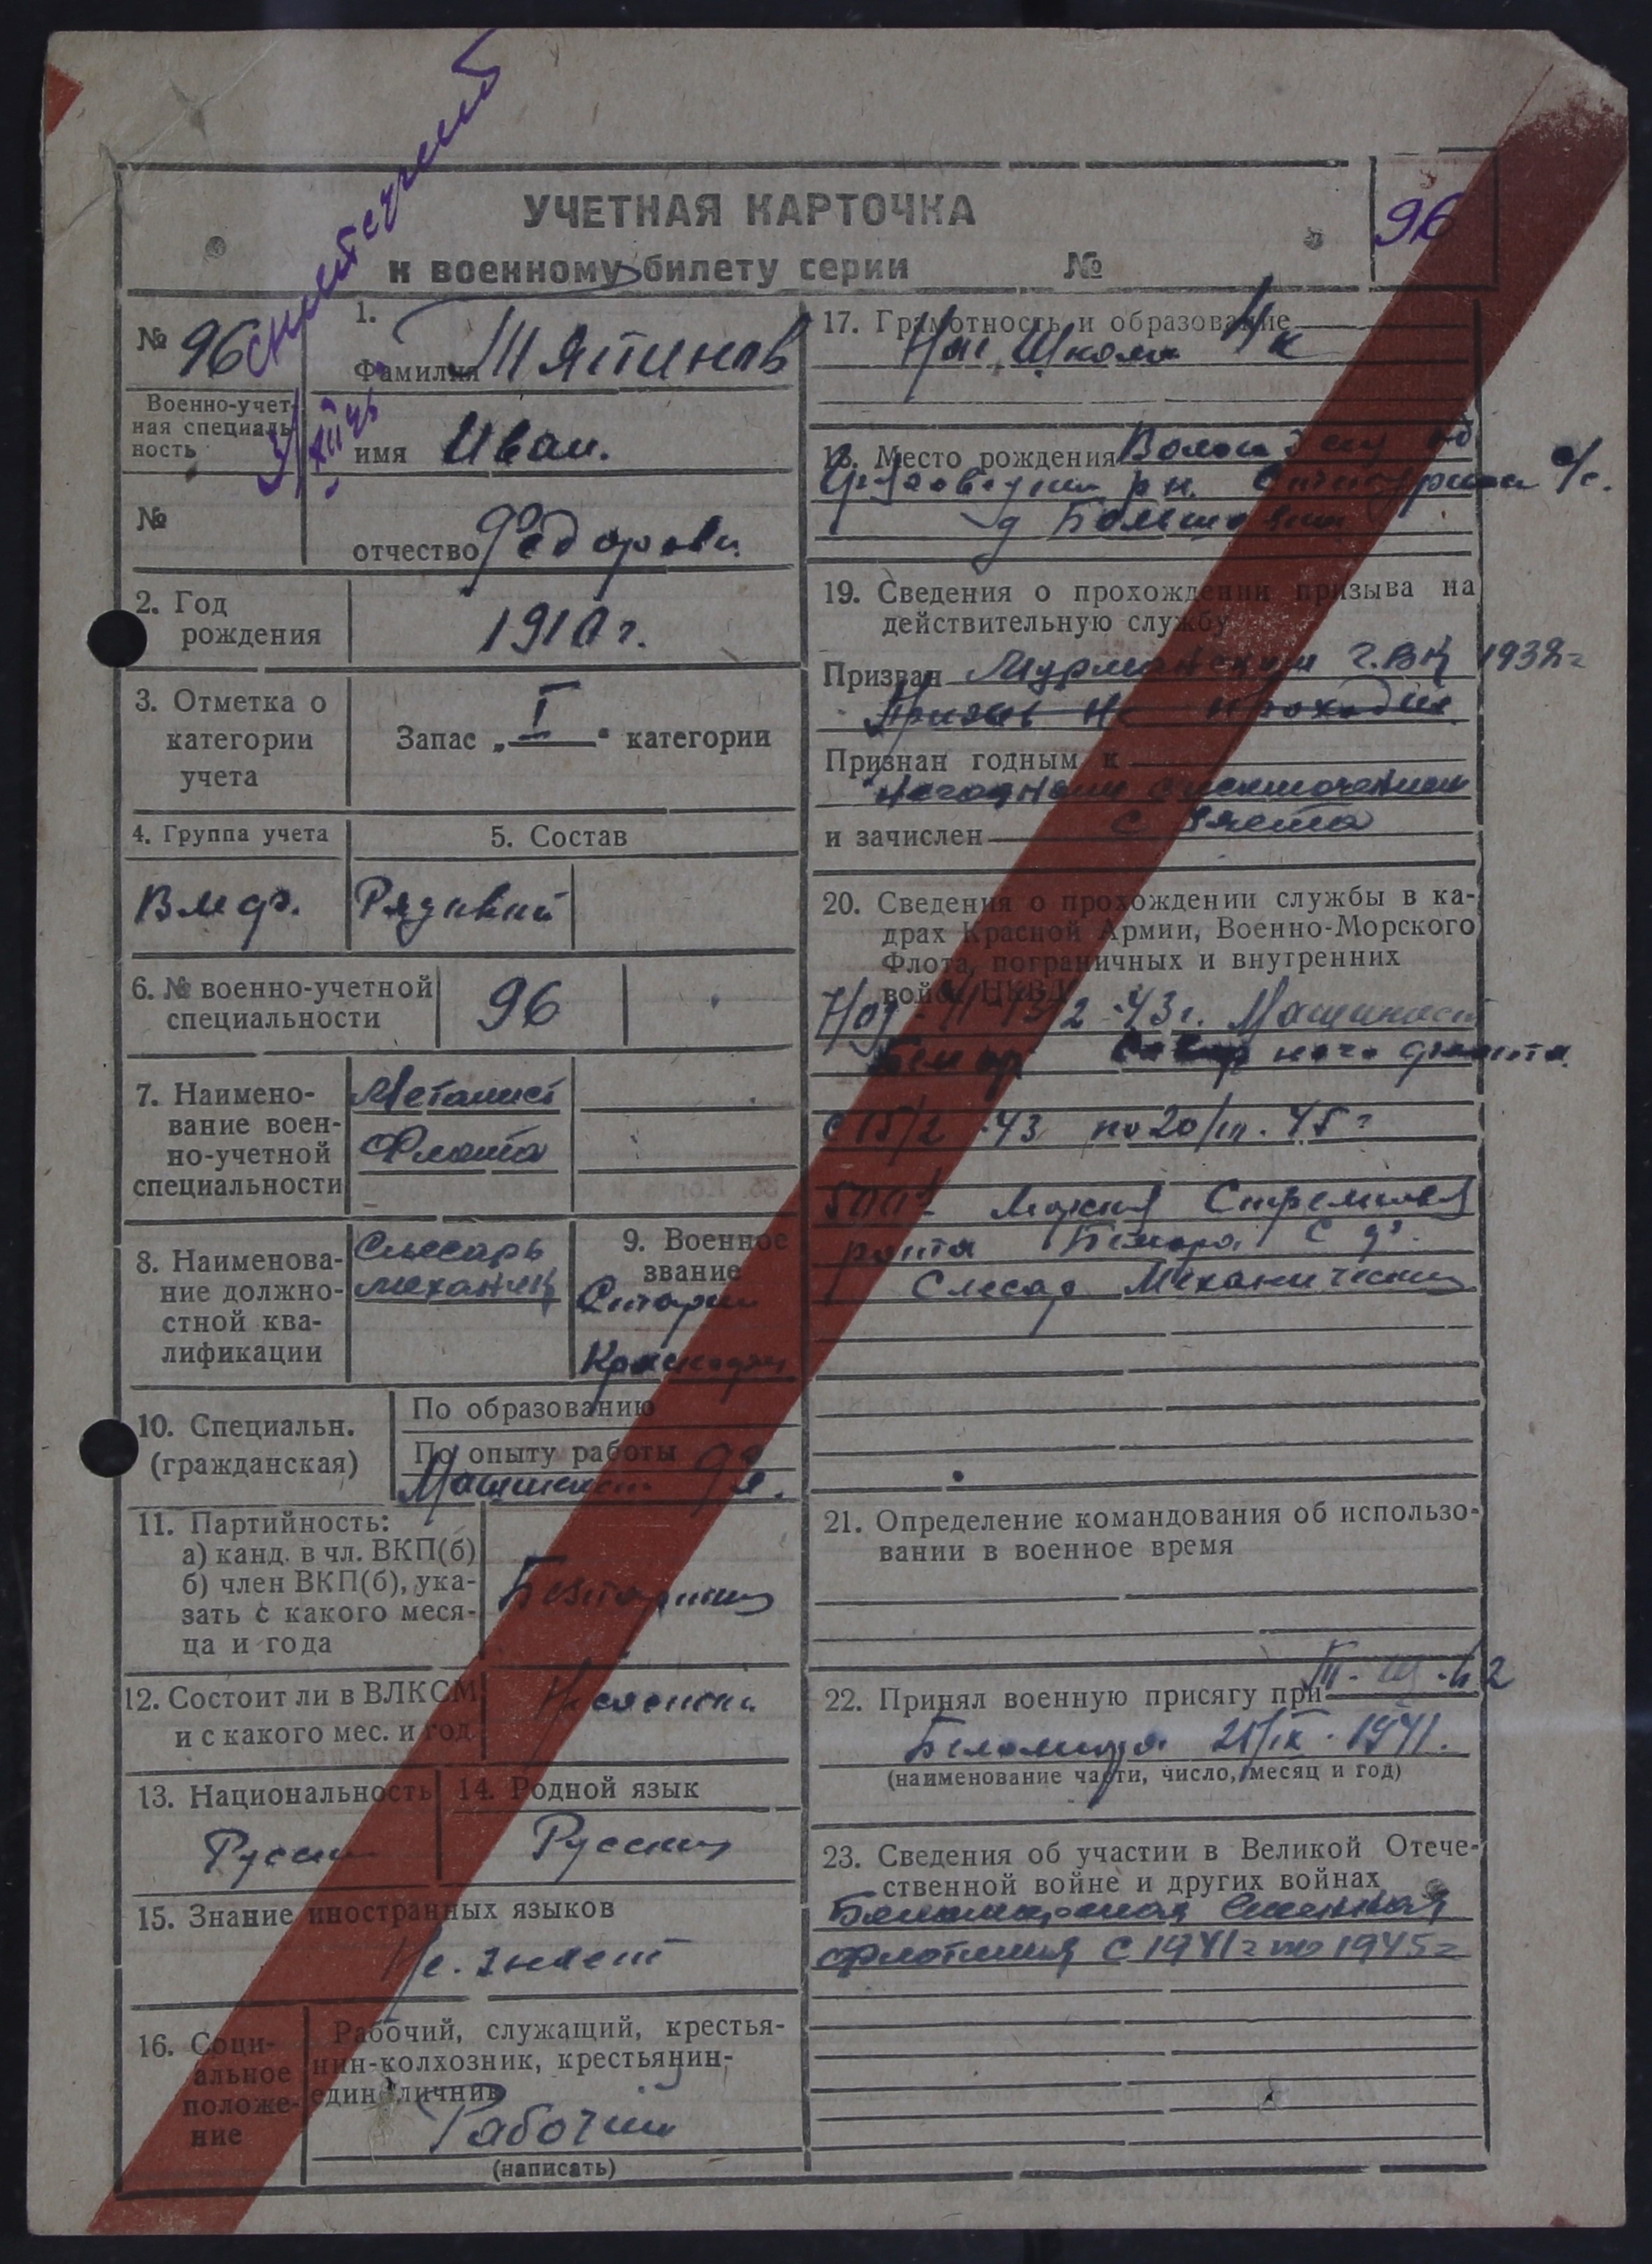 УЧЕТНАЯ КАРТОЧКА
96
к военному билету серии №
№ 96
Военно-учет-
ная специаль-
ность
№
1.
Фамилия Шятинов
имя Иван.
отчество Федорови.
2. Год
рождения
1910 г.
3. Отметка о
категории
учета
Запас „I“ категории
4. Группа учета
5. Состав
Вмф. Рядовой
6. № военно-учетной
специальности
96
7. Наимено-
вание воен-
но-учетной
специальности
Металист
Флота
8. Наименова-
ние должно-
стной ква-
лификации
Слесарь
механик
9. Военное
звание
Старши
Краснофл
10. Специальн.
(гражданская)
По образованию
По опыту работы
Машинист 9 л.
11. Партийность:
а) канд. в чл. ВКП(б)
б) член ВКП(б), ука-
зать с какого меся-
ца и года
Безпартиц
12. Состоит ли в ВЛКСМ
и с какого мес. и год
13. Национальность
Русски
14. Родной язык
Русский
15. Знание иностранных языков
Не. знает
16. Соци-
альное
положе-
ние
Рабочий, служащий, крестья-
нин-колхозник, крестьянин-
единоличник
Рабочий
(написать)
17. Грамотность и образование
Нач. Школа 4 к
18. Место рождения Вологодску об
рн. с/с.
д
19. Сведения о прохождении призыва на
действительную службу
Призван Мурманским Г.ВК 1932г
Призыв Не проходил
Признан годным к
Негодным с исключением
и зачислен с учета
20. Сведения о прохождении службы в ка-
драх Красной Армии, Военно-Морского
Флота, пограничных и внутренних
войск НКВД
2-43г. Машинист
Северного флота
с 15/2-43 по 20/III.45г
Стрелковая
рота С ф.
Слесар Механически
21. Определение командования об использо-
вании в военное время
22. Принял военную присягу при
21/IX.1941.
(наименование части, число, месяц и год)
23. Сведения об участии в Великой Отече-
ственной войне и других войнах
Беломорская Военная
флотилия С 1941г по 1945г